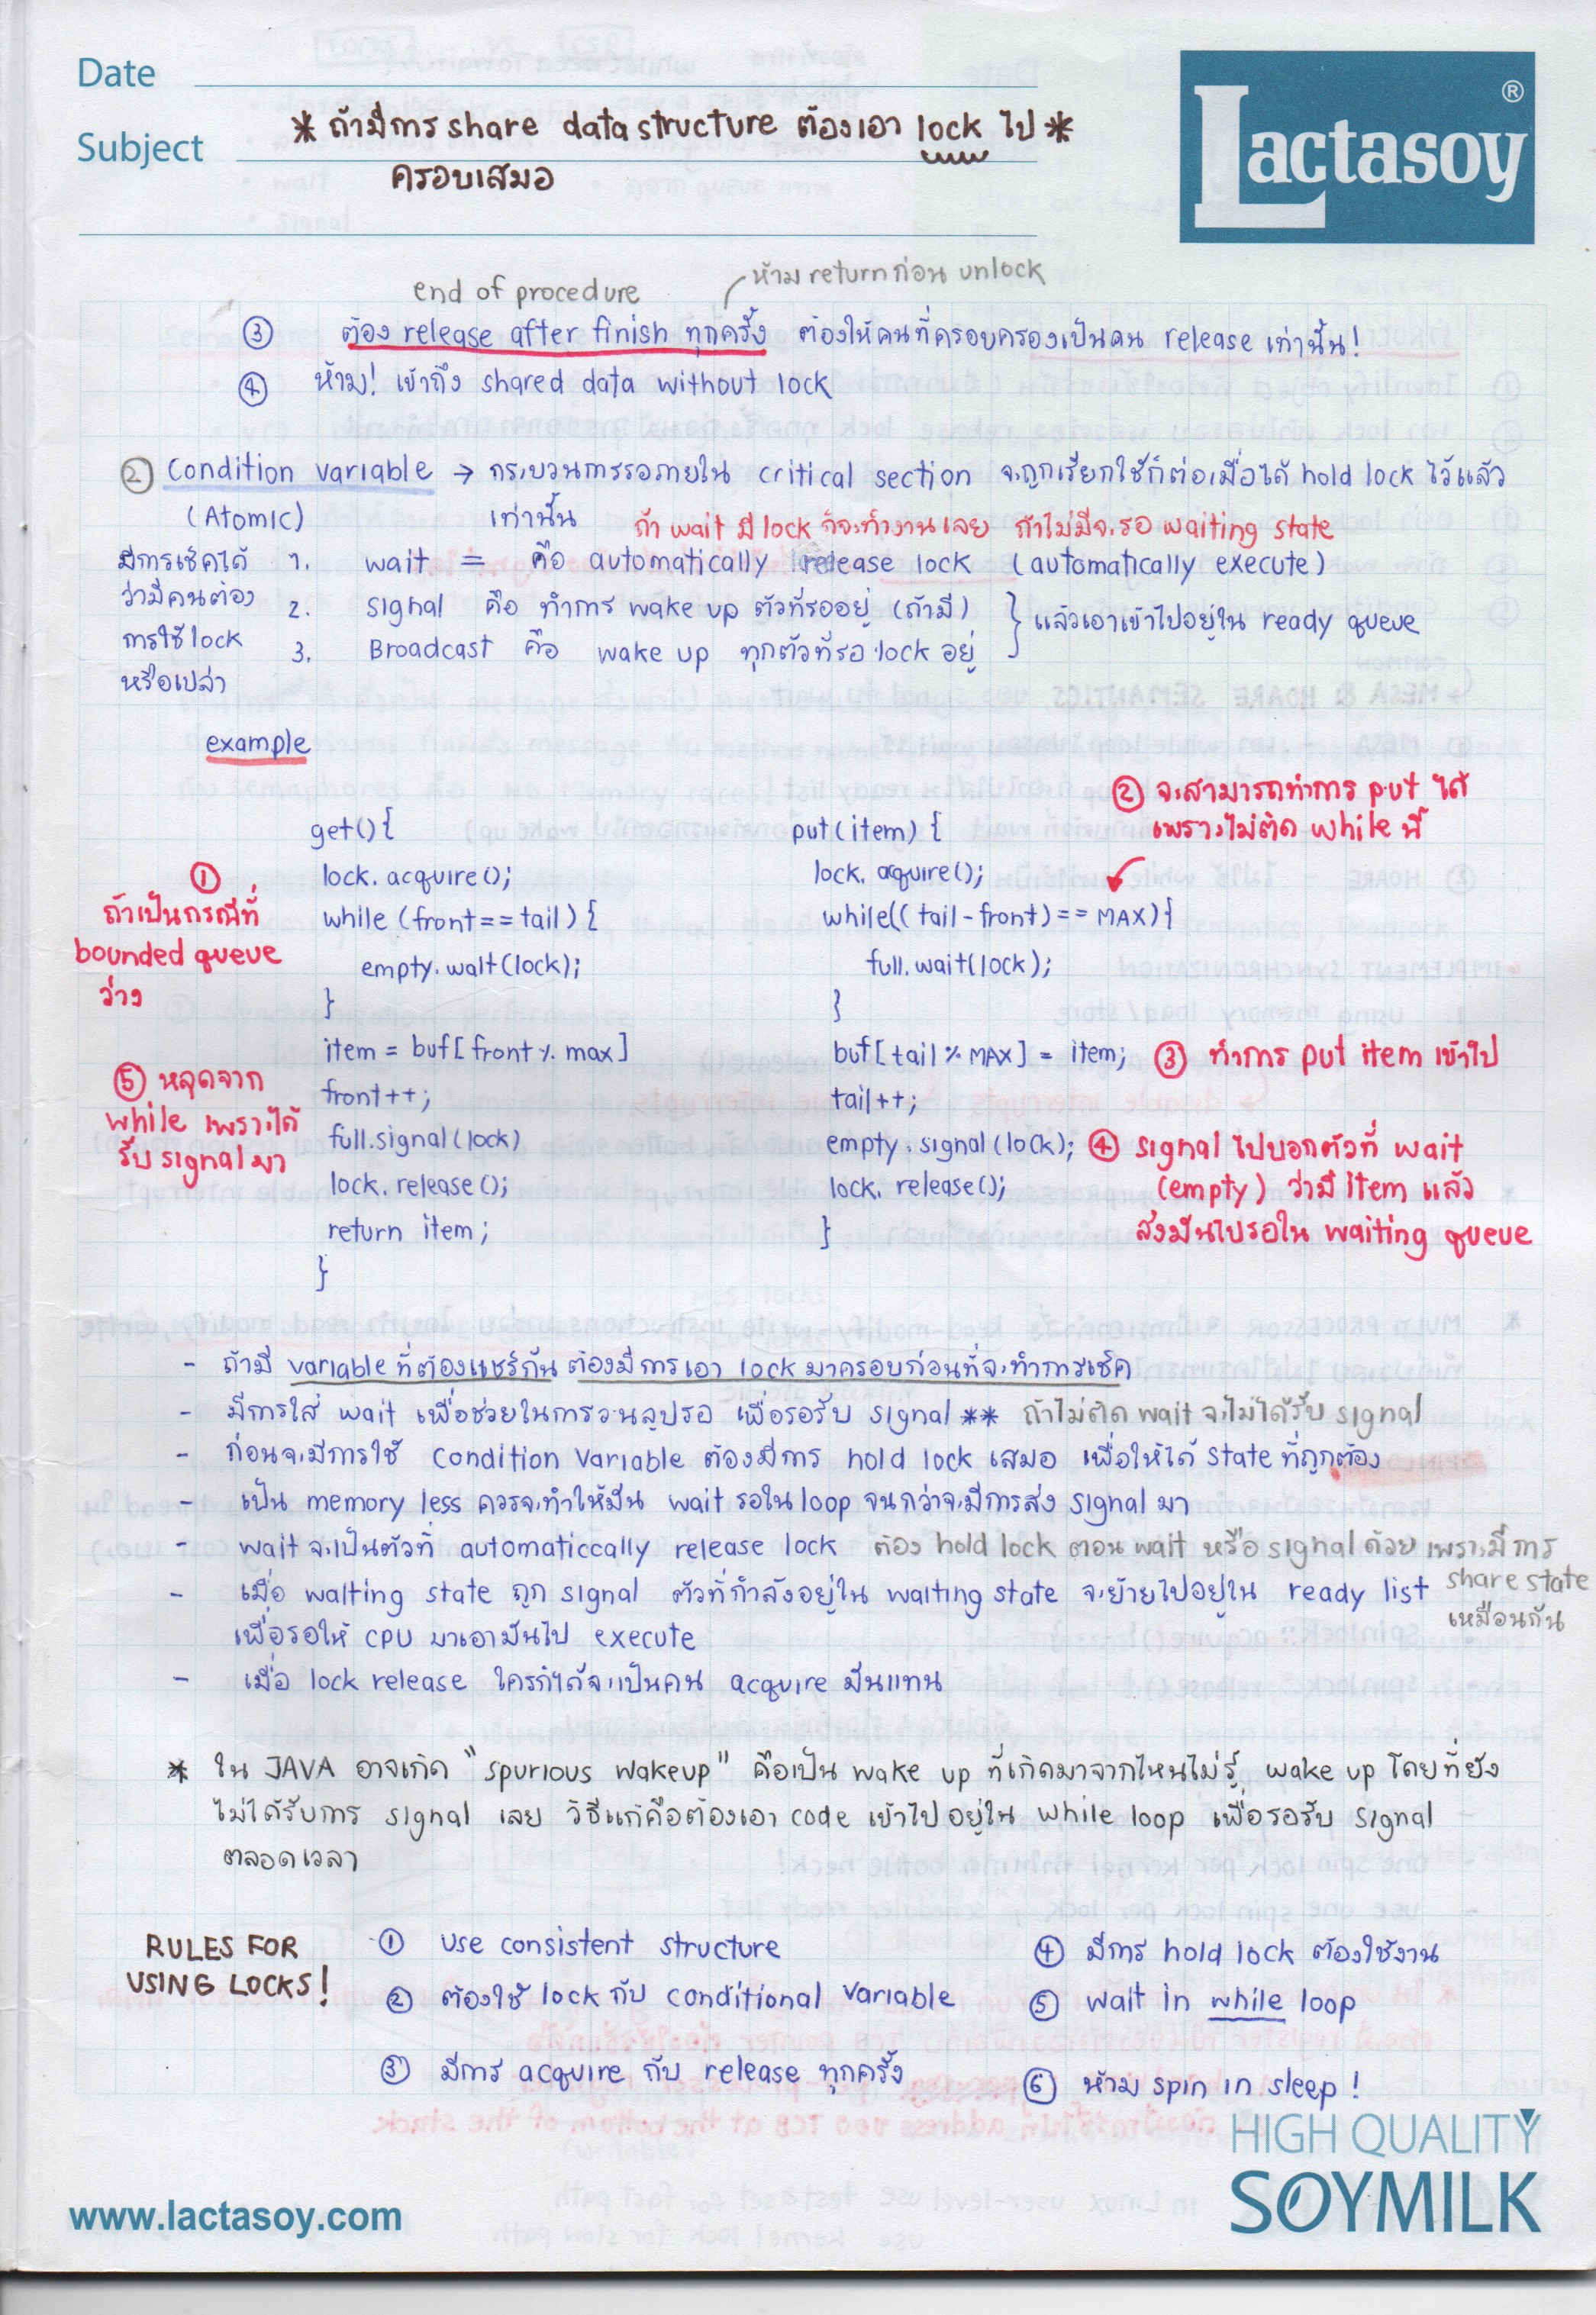 Date
Subject
Lactasoy ®
* ถ้ามีการ share data structure ต้องเอา lock ไป *
ครอบเสมอ
end of procedure
ห้าม return ก่อน unlock
③ ต้อง release after finish ทุกครั้ง ต้องให้คนที่ครอบครองเป็นคน release เท่านั้น!
④ ห้าม! เข้าถึง shared data without lock
② Condition variable → กระบวนการรอภายใน critical section จะถูกเรียกใช้ก็ต่อเมื่อได้ hold lock ไว้แล้ว
(Atomic) เท่านั้น
ถ้า wait มี lock ก็จะทำงานเลย ถ้าไม่มีจะรอ waiting state
มีการเช็คได้
ว่ามีคนต้อง
การใช้ lock
หรือเปล่า
1. wait = คือ automatically release lock (automatically execute)
2. signal คือ ทำการ wake up ตัวที่รออยู่ (ถ้ามี)
3. Broadcast คือ wake up ทุกตัวที่รอ lock อยู่
} แล้วเอาเข้าไปอยู่ใน ready queue
example
get(){
lock. acquire();
while (front==tail) {
empty.wait(lock);
}
item = buf[front % max]
front++;
full.signal(lock)
lock. release();
return item;
}
① ถ้าเป็นกรณีที่
bounded queue
ว่าง
⑤ หลุดจาก
while เพราะได้
รับ signal มา
put(item) {
lock. acquire();
while((tail-front)== MAX){
full.wait(lock);
}
buf[tail % MAX] = item;
tail++;
empty.signal(lock);
lock. release();
}
② จะสามารถทำการ put ได้
เพราะไม่ติด while นี้
③ ทำการ put item เข้าไป
④ signal ไปบอกตัวที่ wait
(empty) ว่ามี item แล้ว
ส่งมันไปรอใน waiting queue
- ถ้ามี variable ที่ต้องแชร์กัน ต้องมีการเอา lock มาครอบก่อนที่จะทำการเช็ค
- มีการใส่ wait เพื่อช่วยในการวนลูปรอ เพื่อรอรับ signal ** ถ้าไม่ติด wait จะไม่ได้รับ signal
- ก่อนจะมีการใช้ Condition Variable ต้องมีการ hold lock เสมอ เพื่อให้ได้ state ที่ถูกต้อง
- เป็น memory less ควรจะทำให้มัน wait รอใน loop จนกว่าจะมีการส่ง signal มา
- wait จะเป็นตัวที่ automaticcally release lock ต้อง hold lock ตอน wait หรือ signal ด้วย เพราะมีการ
share state
เหมือนกัน
- เมื่อ waiting state ถูก signal ตัวที่กำลังอยู่ใน waiting state จะย้ายไปอยู่ใน ready list
เพื่อรอให้ CPU มาเอามันไป execute
- เมื่อ lock release ใครก็ได้จะเป็นคน acquire มันแทน
* ใน JAVA อาจเกิด "spurious wakeup" คือเป็น wake up ที่เกิดมาจากไหนไม่รู้ wake up โดยที่ยัง
ไม่ได้รับการ signal เลย วิธีแก้คือต้องเอา code เข้าไปอยู่ใน while loop เพื่อรอรับ signal
ตลอดเวลา
RULES FOR
USING LOCKS!
① use consistent structure
② ต้องใช้ lock กับ conditional variable
③ มีการ acquire กับ release ทุกครั้ง
④ มีการ hold lock ต้องใช้งาน
⑤ wait in while loop
⑥ ห้าม spin in sleep!
HIGH QUALITY
SOYMILK
www.lactasoy.com